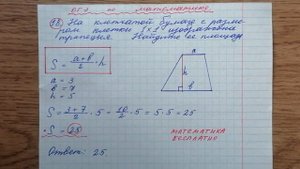 ОГЭ по математике
18) На клетчатой бумаге с разме-
ром клетки 1×1 изображена
трапеция. Найдите её площадь
S = a+b/2 · h
a = 3
b = 7
h = 5
S = 3+7/2 · 5 = 10/2 · 5 = 5 · 5 = 25
S = 25
Ответ: 25.
a
h
b
МАТЕМАТИКА
БЕСПЛАТНО